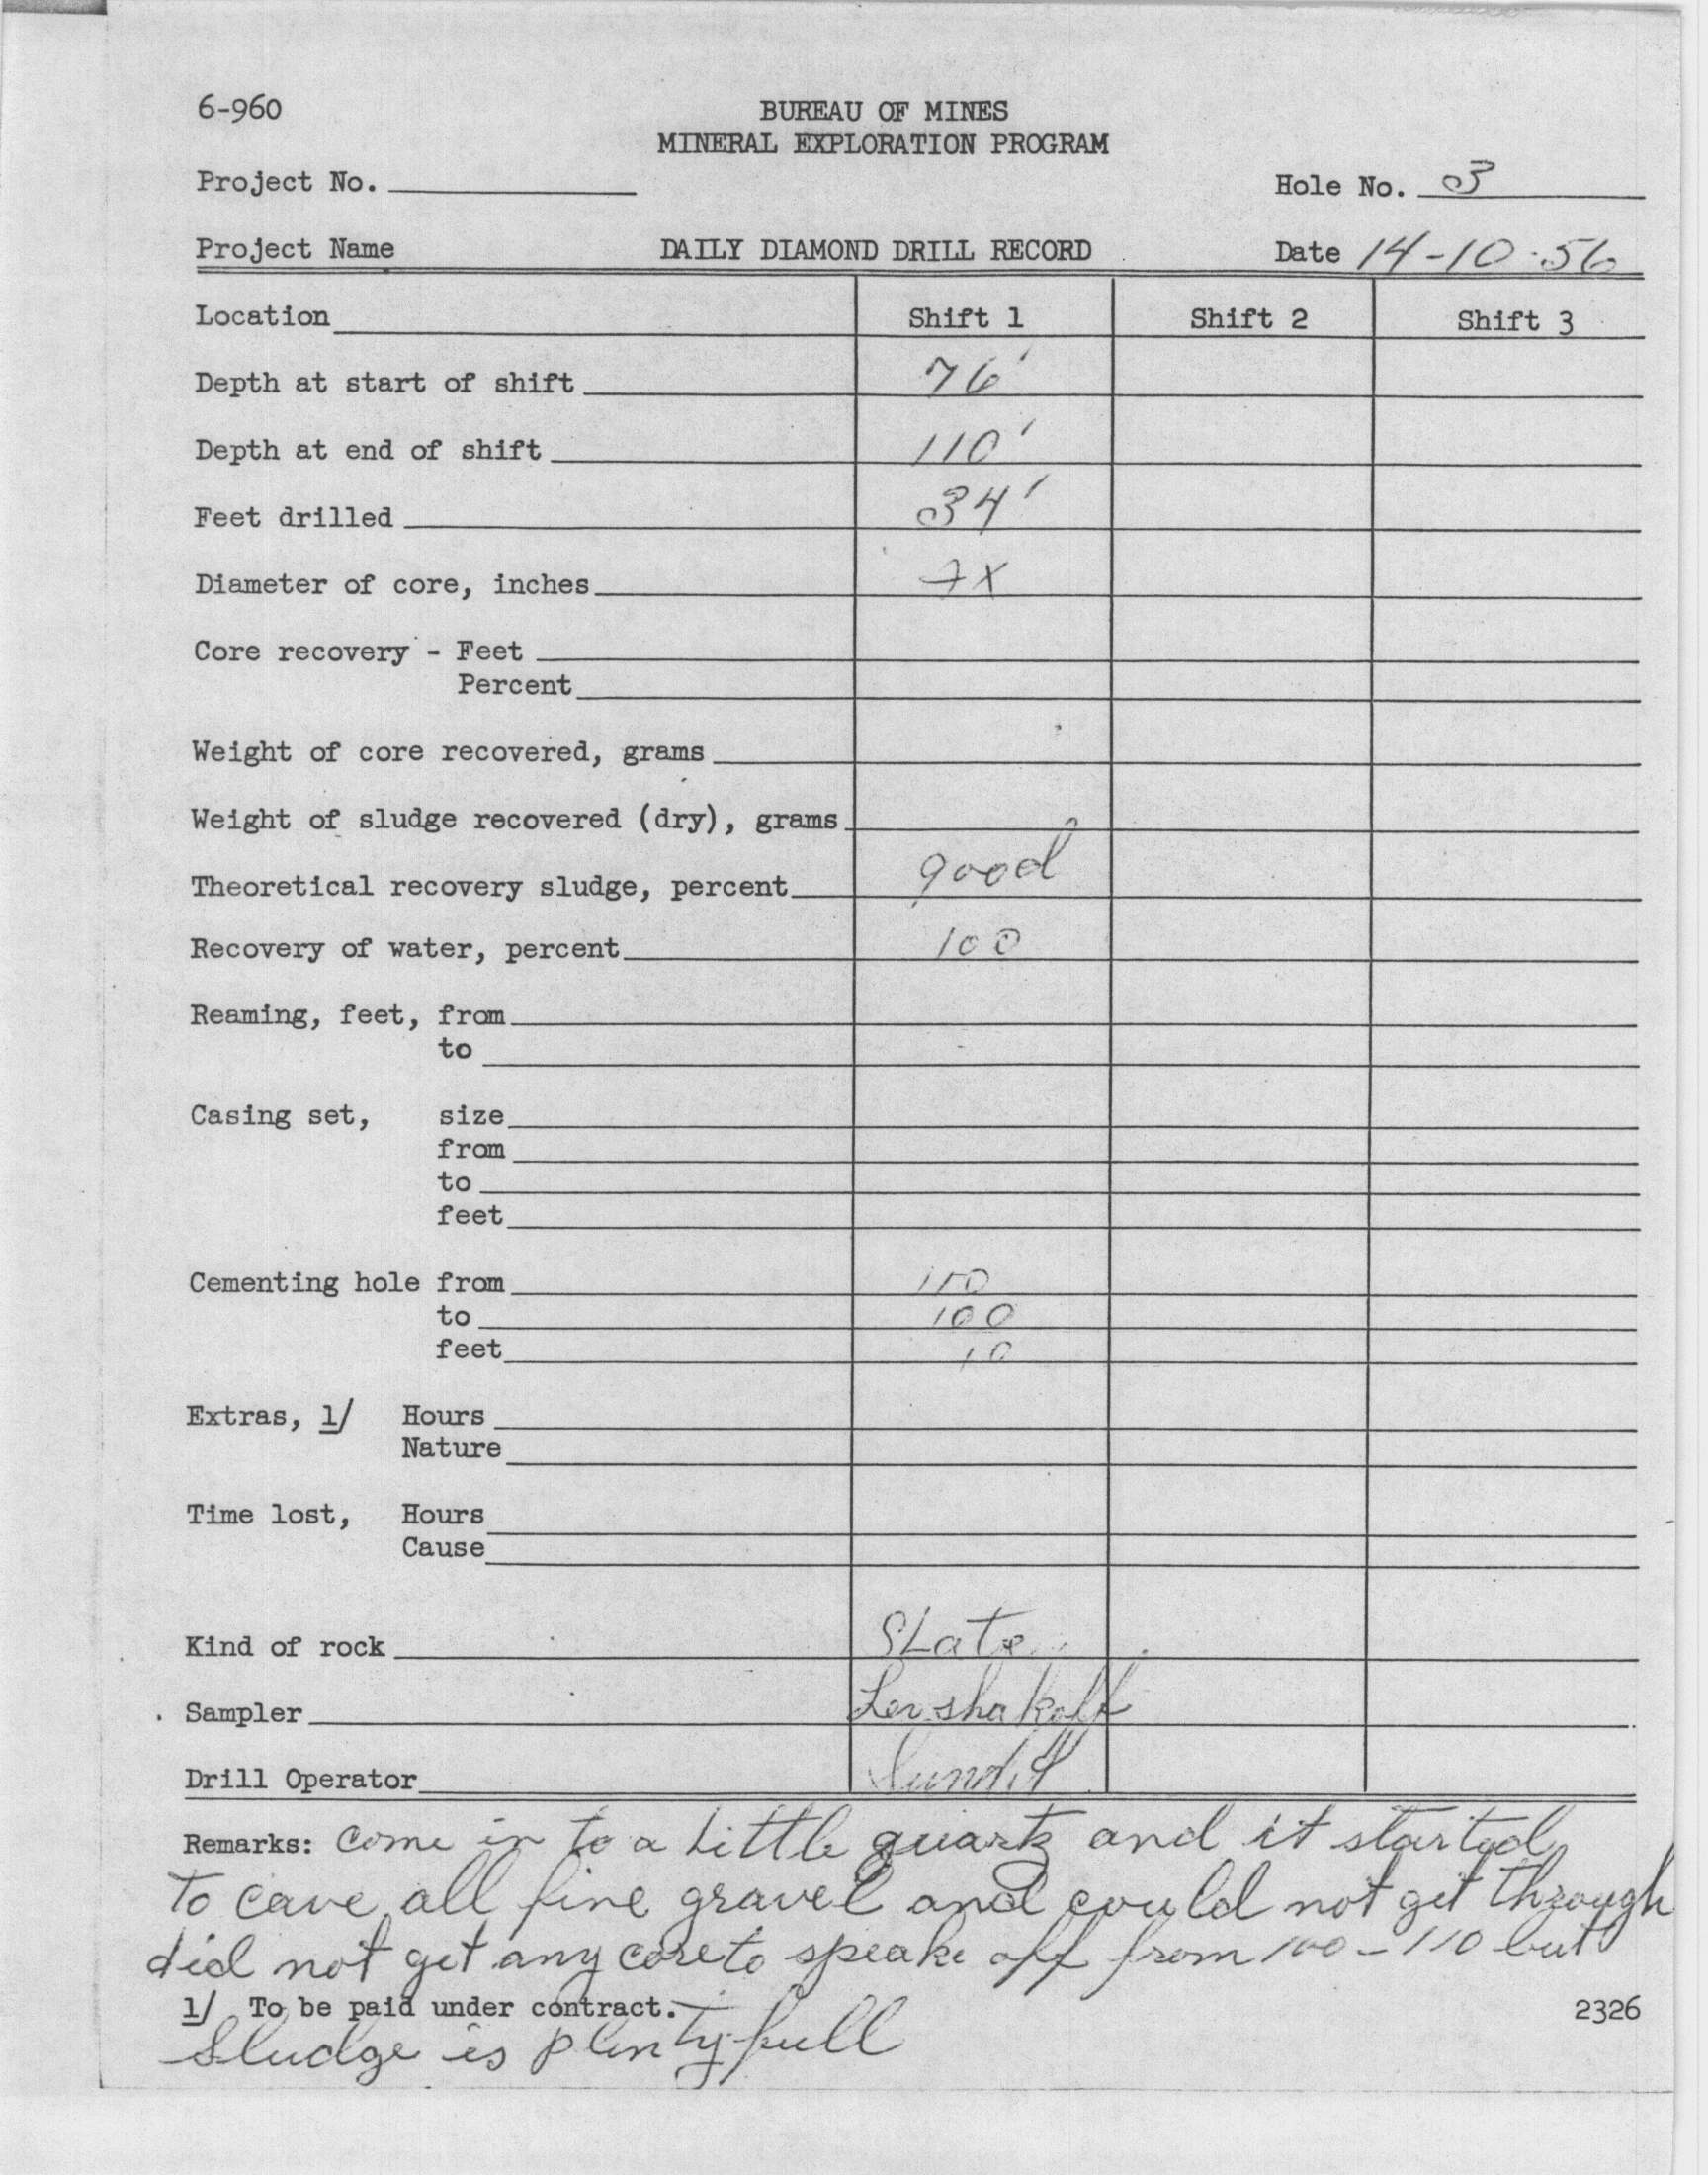 6-960
BUREAU OF MINES
MINERAL EXPLORATION PROGRAM
Project No. Hole No. 3
Project Name DAILY DIAMOND DRILL RECORD Date 14-10-56
Location Shift 1 Shift 2 Shift 3
Depth at start of shift 76'
Depth at end of shift 110'
Feet drilled 34'
Diameter of core, inches
Core recovery - Feet
Percent
Weight of core recovered, grams
Weight of sludge recovered (dry), grams
Theoretical recovery sludge, percent good
Recovery of water, percent 100
Reaming, feet, from
to
Casing set, size
from
to
feet
Cementing hole from 110
to 100
feet 10
Extras, 1/ Hours
Nature
Time lost, Hours
Cause
Kind of rock SLate
Sampler
Drill Operator
Remarks: come in to a Little quartz and it started
to cave all fine gravel and could not get through
did not get any core to speake off from 100-110 but
1/ To be paid under contract. 2326
Sludge is plentyfull